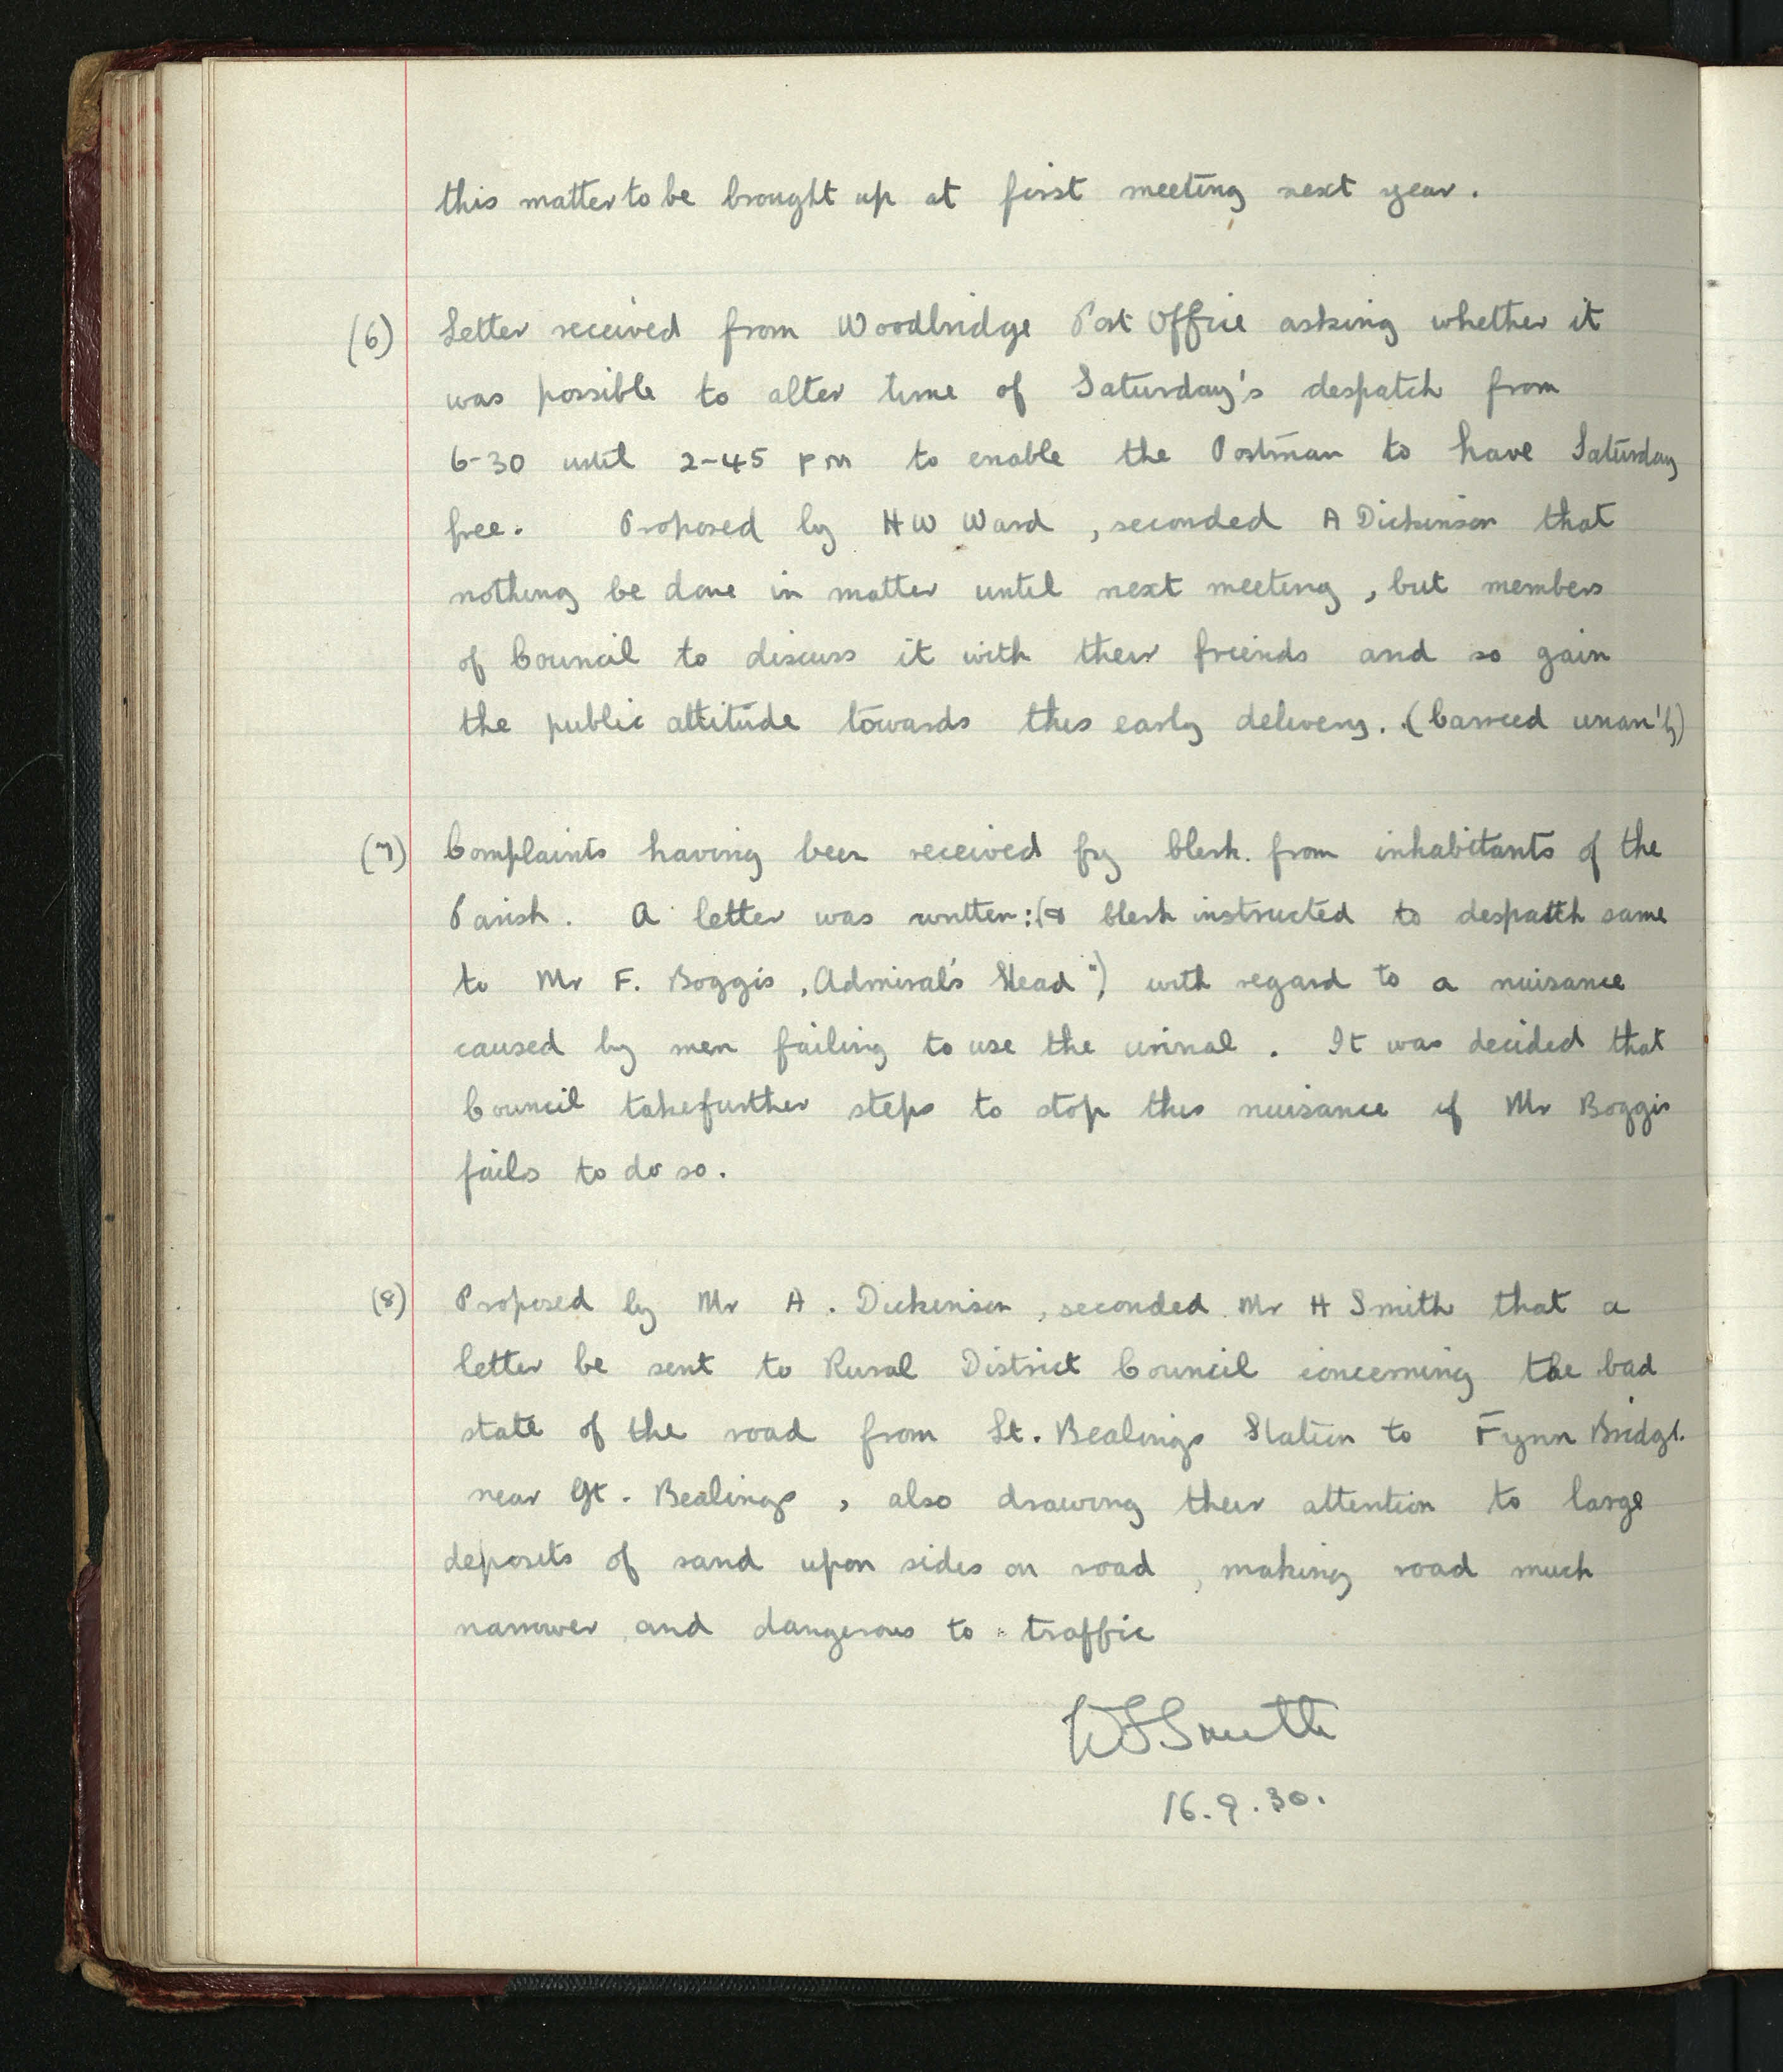 this matter to be brought up at first meeting next year.
(6) Letter received from Woodbridge Post Office asking whether it
was possible to alter time of Saturday's despatch from
6-30 until 2-45 PM to enable the Postman to have Saturday
free. Proposed by HW Ward, seconded A Dickenson that
nothing be done in matter until next meeting, but members
of Council to discuss it with their friends and so gain
the public attitude towards this early delivery. (Carried unan'ly)
(7) Complaints having been received by Clerk. from inhabitants of the
Parish. A letter was written: (& Clerk instructed to despatch same
to Mr F. Boggis, Admiral's Head") with regard to a nuisance
caused by men failing to use the urinal. It was decided that
Council take further steps to stop this nuisance if Mr Boggis
fails to do so.
(8) Proposed by Mr A. Dickenson, seconded Mr H Smith that a
letter be sent to Rural District Council concerning the bad
state of the road from Lt. Bealings Station to Fynn Bridge.
near Gt. Bealings, also drawing their attention to large
deposits of sand upon sides on road, making road much
narrower and dangerous to traffic
WSSmith
16.9.30.